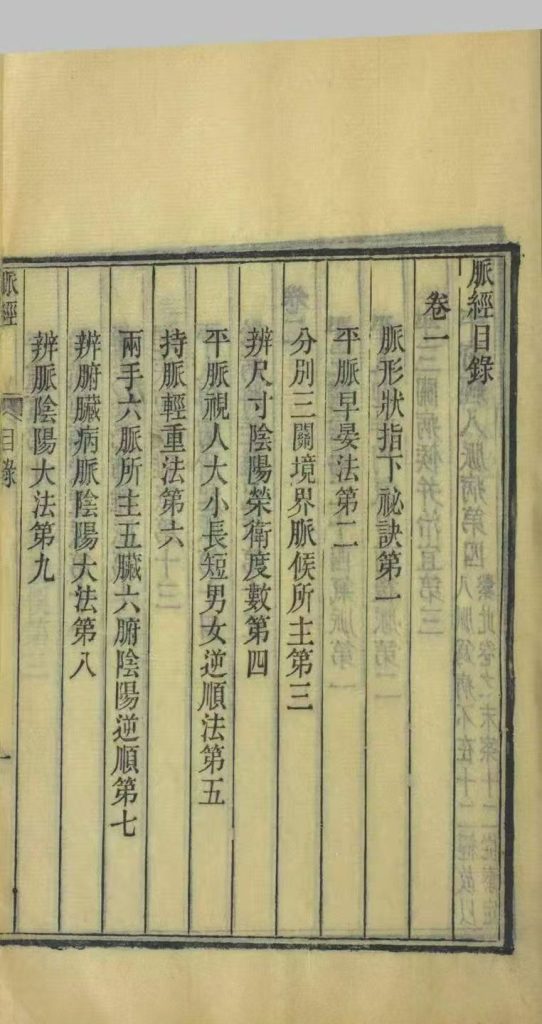 脈經目錄
卷一
脈形狀指下祕訣第一
平脈早晏法第二
分別三關境界脈候所主第三
辨尺寸陰陽榮衛度數第四
平脈視人大小長短男女逆順法第五
持脈輕重法第六
兩手六脈所主五臟六腑陰陽逆順第七
辨腑臟病脈陰陽大法第八
辨脈陰陽大法第九
脈經
目錄
一